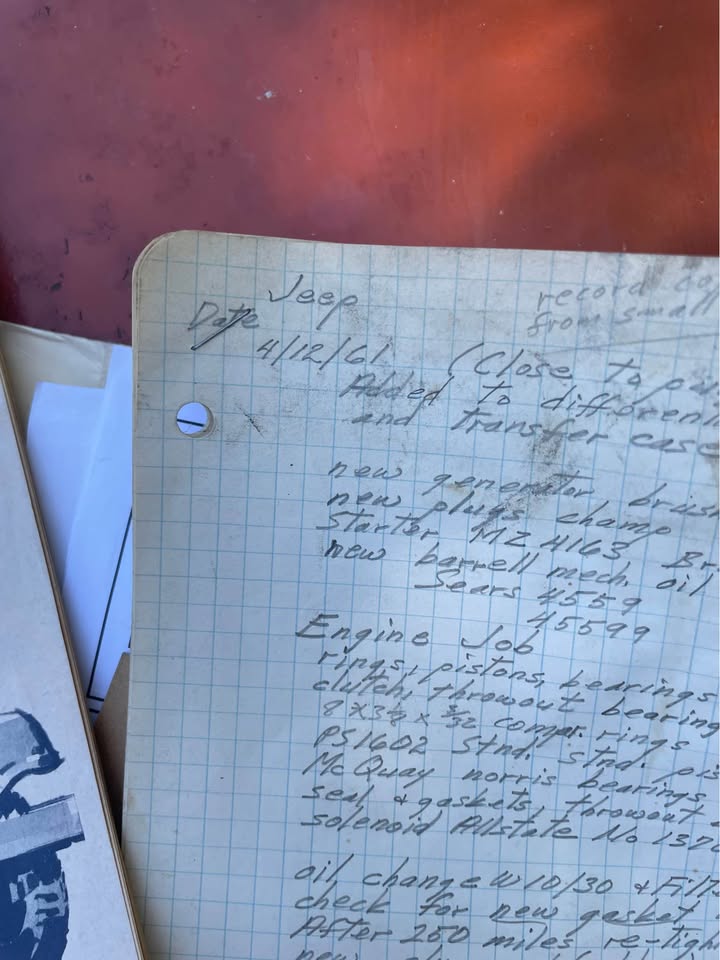 Jeep record
from small
Date
4/12/61 (Close to
Added to
and transfer case
new generator
new plugs champ
Starter MZ 4163
new barrell mech. oil
Sears 4559
45599
Engine Job
rings, pistons, bearings
clutch, throwout bearing
8 x 3 1/8 x 3/32 compr. rings
PS1602 Stnd. stnd.
McQuay norris bearings,
seal & gaskets, throwout
solenoid Allstate No
oil change W 10/30 &
check for new gasket
After 250 miles
new